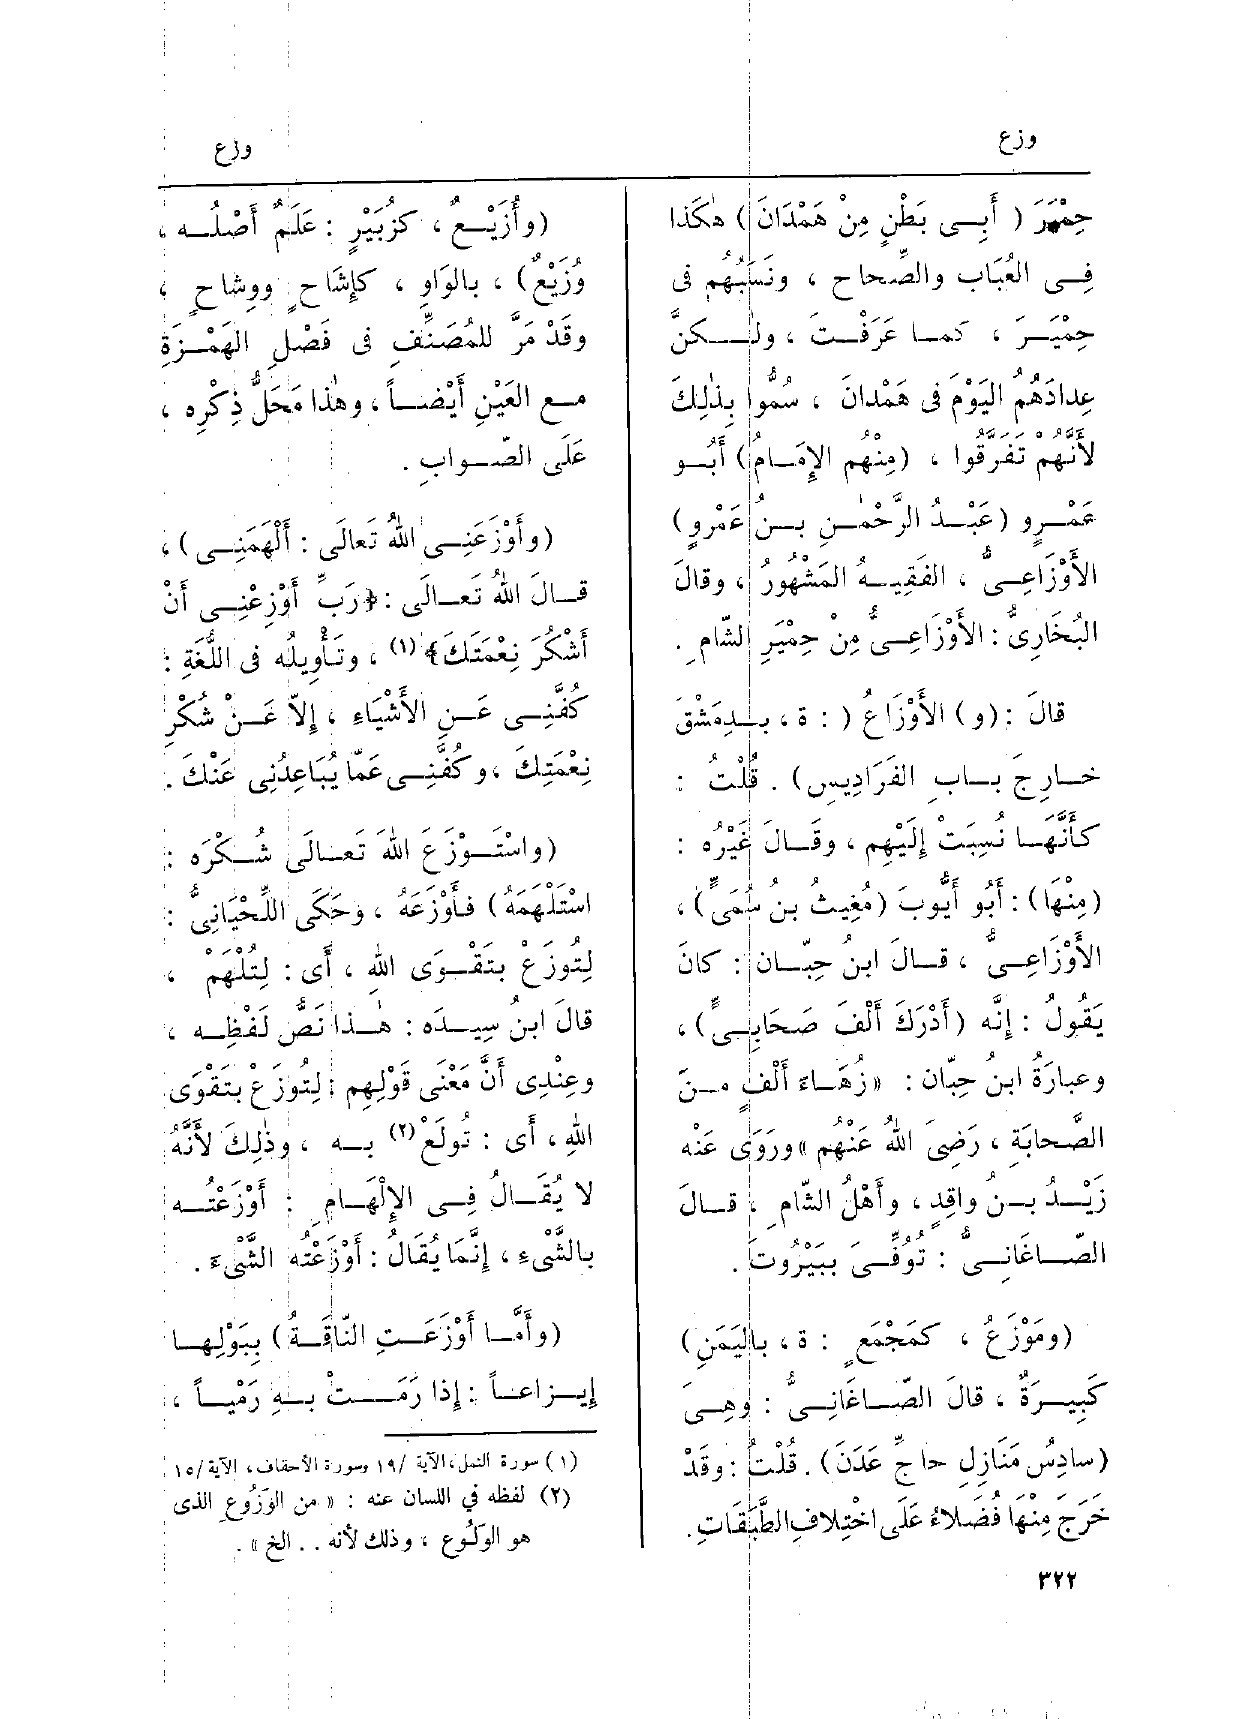 وزع
وزع
حِمْيَرَ ( أَبِى بَطْنٍ مِنْ هَمْدَانَ ) هٰكَذا
فِى العُبَاب والصِّحاح ، ونَسَبُهُم فى
حِمْيَرَ ، كما عَرَفْتَ ، ولٰكنَّ
عِدادَهُمُ اليَوْمَ فى هَمْدانَ ، سُمُّوا بِذٰلِكَ
لأَنَّهُمْ تَفَرَّقُوا ، (مِنْهُم الإِمَامُ) أَبُو
عَمْرٍو (عَبْدُ الرَّحْمٰنِ بنُ عَمْرٍو)
الأَوْزَاعِىُّ ، الفَقِيهُ المَشْهُورُ ، وقالَ
البُخَارِىُّ : الأَوْزَاعِىُّ مِنْ حِمْيَرِ الشّام .
قالَ : (و) الأَوْزَاعُ ( : ة ، بدِمَشْقَ
خارِجَ بابِ الفَرَادِيسِ) . قُلْتُ :
كأَنَّهَا نُسِبَتْ إِلَيْهِم ، وقَالَ غَيْرُه :
(مِنْهَا) : أَبُو أَيُّوبَ (مُغِيثُ بنُ سُمَىٍّ) ،
الأَوْزَاعِىُّ ، قالَ ابنُ حِبّان : كانَ
يَقُولُ : إِنَّه (أَدْرَكَ أَلْفَ صَحَابِىٍّ) ،
وعبارَةُ ابنُ حِبّان : « زُهَاءَ أَلْفٍ منَ
الصَّحابَةِ ، رَضِىَ اللهُ عَنْهُم » ورَوَى عَنْه
زَيْدُ بنُ واقِدٍ ، وأَهْلُ الشّام ، قالَ
الصّاغَانِىُّ : تُوُفِّىَ ببَيْرُوتَ .
(ومَوْزَعُ ، كمَجْمَعٍ : ة ، باليَمَنِ)
كَبِيرَةٌ ، قالَ الصّاغَانِىُّ : وهِىَ
(سادِسُ مَنَازِلِ حاجِّ عَدَنَ) . قُلْتُ : وقَدْ
خَرَجَ مِنْهَا فُضَلاءُ عَلَى اخْتِلافِ الطَّبَقَاتِ.
٣٢٢
(وأُزَيْعٌ ، كزُبَيْرٍ : عَلَمٌ أَصْلُه ،
وُزَيْعٌ) ، بالوَاوِ ، كإِشَاحٍ ووِشاحٍ ،
وقَدْ مَرَّ للمُصَنِّفِ فى فَصْلِ الهَمْزَةِ
مع العَيْنِ أَيْضاً ، وهٰذا مَحَلُّ ذِكْرِه ،
عَلَى الصَّوابِ .
(وأَوْزَعَنِى اللهُ تَعالَى : أَلْهَمَنِى) ،
قالَ اللهُ تَعالَى : ﴿رَبِّ أَوْزِعْنِى أَنْ
أَشْكُرَ نِعْمَتَكَ﴾ (١) ، وتَأْوِيلُه فى اللُّغَةِ :
كُفَّنِى عَنِ الأَشْيَاءِ ، إِلاّ عَنْ شُكْرِ
نِعْمَتِكَ ، وكُفَّنِى عَمّا يُبَاعِدُنِى عَنْكَ .
(واسْتَوْزَعَ اللهَ تَعالَى شُكْرَه :
اسْتَلْهَمَهُ) فأَوْزَعَهُ ، وحَكَى اللِّحْيَانِىُّ :
لِتُوزَعْ بتَقْوَى اللهِ ، أَى : لِتُلْهَمْ ،
قالَ ابنُ سِيدَه : هٰذا نَصُّ لَفْظِه ،
وعِنْدِى أَنَّ مَعْنَى قَوْلِهِم : لِتُوزَعْ بتَقْوَى
اللهِ ، أَى : تُولَعْ (٢) به ، وذٰلِكَ لأَنَّهُ
لا يُقَالُ فِى الإِلْهَامِ : أَوْزَعْتُه
بالشَّىءِ ، إِنَّمَا يُقَالُ : أَوْزَعْتُه الشَّىءَ .
(وأَمَّا أَوْزَعَتِ النّاقَةُ) بِبَوْلِها
إِيزاعاً : إِذا رَمَتْ بهِ رَمْياً ،
(١) سورة النمل، الآية /١٩ وسورة الأحقاف، الآية /١٥
(٢) لفظه في اللسان عنه : « من الوَزُوعِ الذى
هو الوَلُوع ، وذلك لأنه . . الخ » .